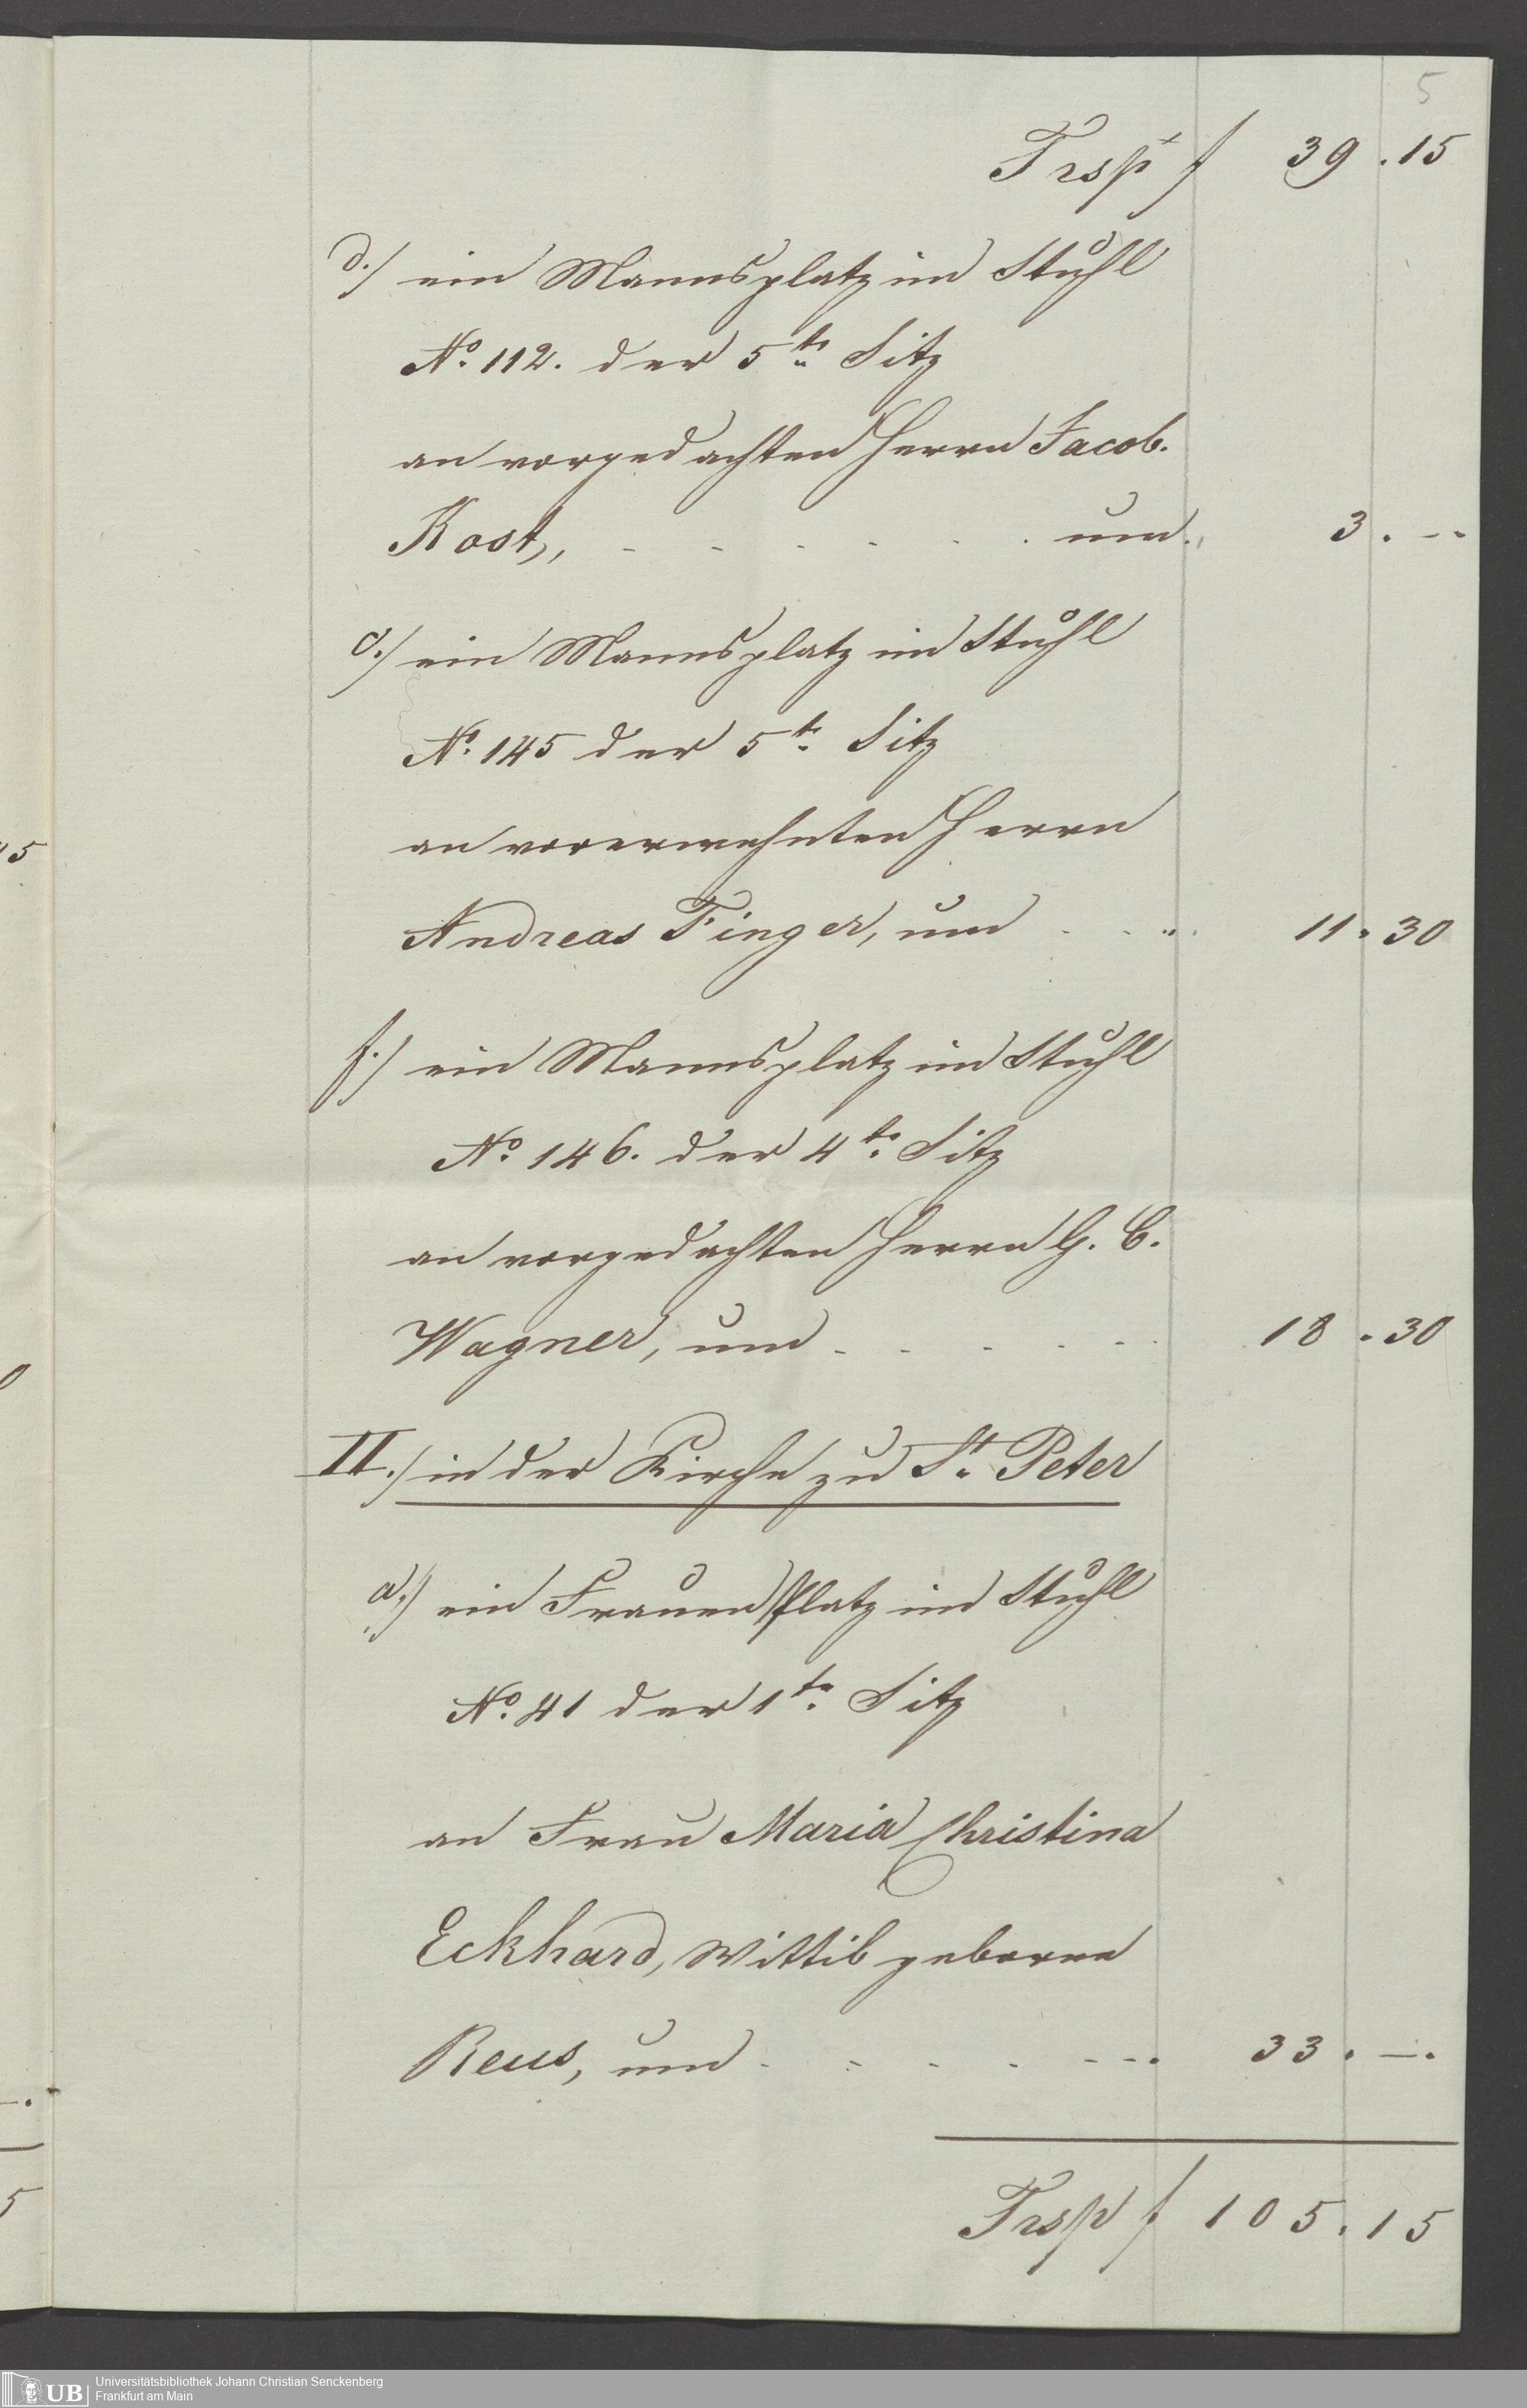 5
Trspt f 39.15
d./ ein Mannsplatz im Stuhl
No. 112. der 5te Sitz
an vorgedachten Herrn Jacob.
Kost, - - - - - - um. 3. --
e./ ein Mannsplatz im Stuhl
No. 145 der 5te Sitz
an vorerwehnten Herrn
Andreas Finger, um - - - 11.30
f./ ein Mannsplatz im Stuhl
No. 146. der 4te Sitz
an vorgedachten Herrn G. C.
Wagner, um - - - - - 18.30
II./ in der Kirche zu St. Peter
a./ ein Frauen Platz im Stuhl
No. 41 der 1te Sitz
an Frau Maria Christina
Eckhard, Wittib geborne
Reus, um - - - - - - 33. —.
Trsp f 105.15
UB Universitätsbibliothek Johann Christian Senckenberg
Frankfurt am Main